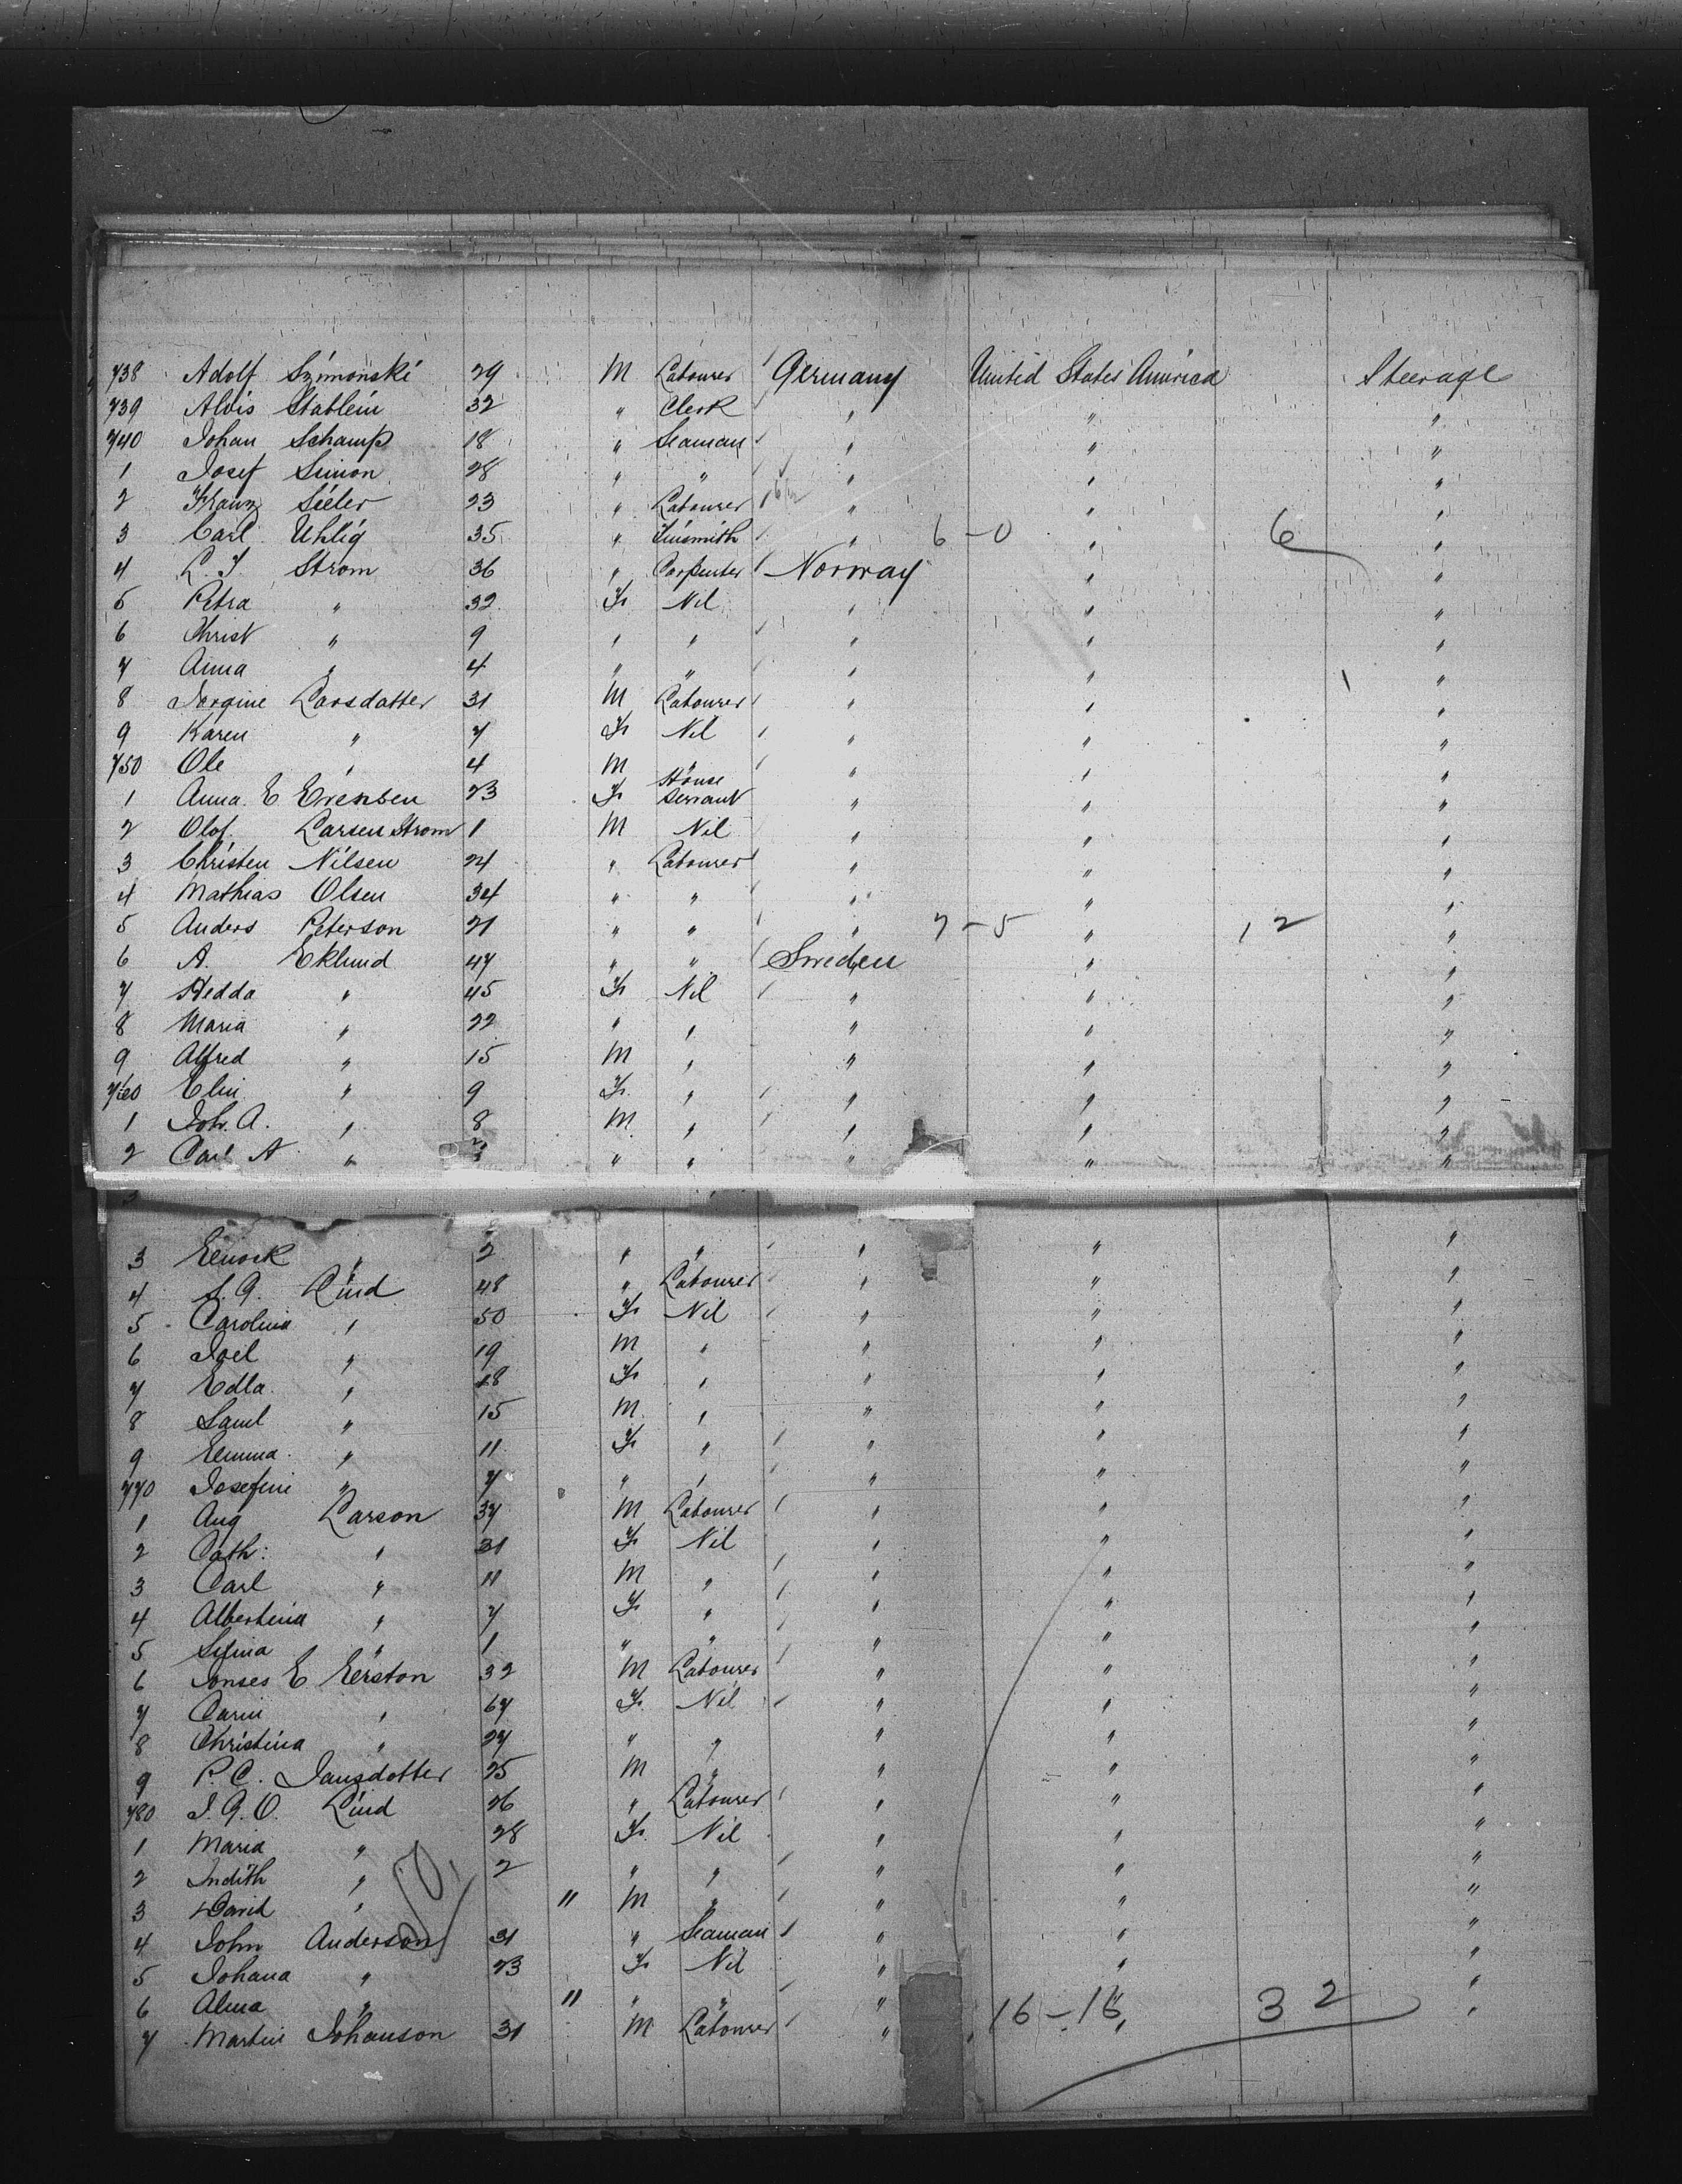 738 Adolf Szimonski 29 M Labourer Germany United States America Steerage
739 Alois Stablein 32 " Clerk " " "
740 Johan Schamp 18 " Seaman " " "
1 Josef Simon 28 " " " " "
2 Franz Sieler 23 " Labourer " " "
3 Carl Uhlig 35 " Tinsmith " 6-0 " 6 "
4 L. T. Strom 36 " Carpenter Norway " "
5 Petra " 32 F Nil " " "
6 Christ " 9 " " " " "
7 Anna " 4 " " " " "
8 Jorgine Larsdatter 31 M Labourer " " "
9 Karen " 7 F Nil " " "
750 Ole " 4 M " " " "
1 Anna E Evensen 23 F House Servant " " "
2 Olof Larsen Strom 1 M Nil " " "
3 Christen Nilsen 24 " Labourer " " "
4 Mathias Olsen 34 " " " " "
5 Anders Peterson 21 " " " 7-5 " 12 "
6 A. Eklund 47 " " Sweden " "
7 Hedda " 45 F Nil " " "
8 Maria " 22 " " " " "
9 Alfred " 15 M " " " "
760 Elin " 9 F " " " "
1 Joh. A. " 8 M " " " "
2 Carl A " 3 " " " " "
3 Enock " 2 " " " " "
4 S. G. Lind 48 " Labourer " " "
5 Carolina " 50 F Nil " " "
6 Joel " 19 M " " " "
7 Edla " 18 F " " " "
8 Saml " 15 M " " " "
9 Emma " 11 F " " " "
770 Josefini " 7 " " " " "
1 Aug Larson 37 M Labourer " " "
2 Cath: " 31 F Nil " " "
3 Carl " 11 M " " " "
4 Albertina " 7 F " " " "
5 " 1 " " " " "
6 Jonses E Kerston 32 M Labourer " " "
7 Carin " 67 F Nil " " "
8 Christina " 27 " " " " "
9 P. C. Jansdotter 25 M " " " "
780 J. G. O. Lind 26 " Labourer " " "
1 Maria " 28 F Nil " " "
2 Judith " 2 " " " " "
3 David " 11 M " " " "
4 John Anderson 31 " Seaman " " "
5 Johana " 23 F Nil " " "
6 Alma " 11 " " " " "
7 Martin Johanson 31 M Labourer " 16-16 " 32 "